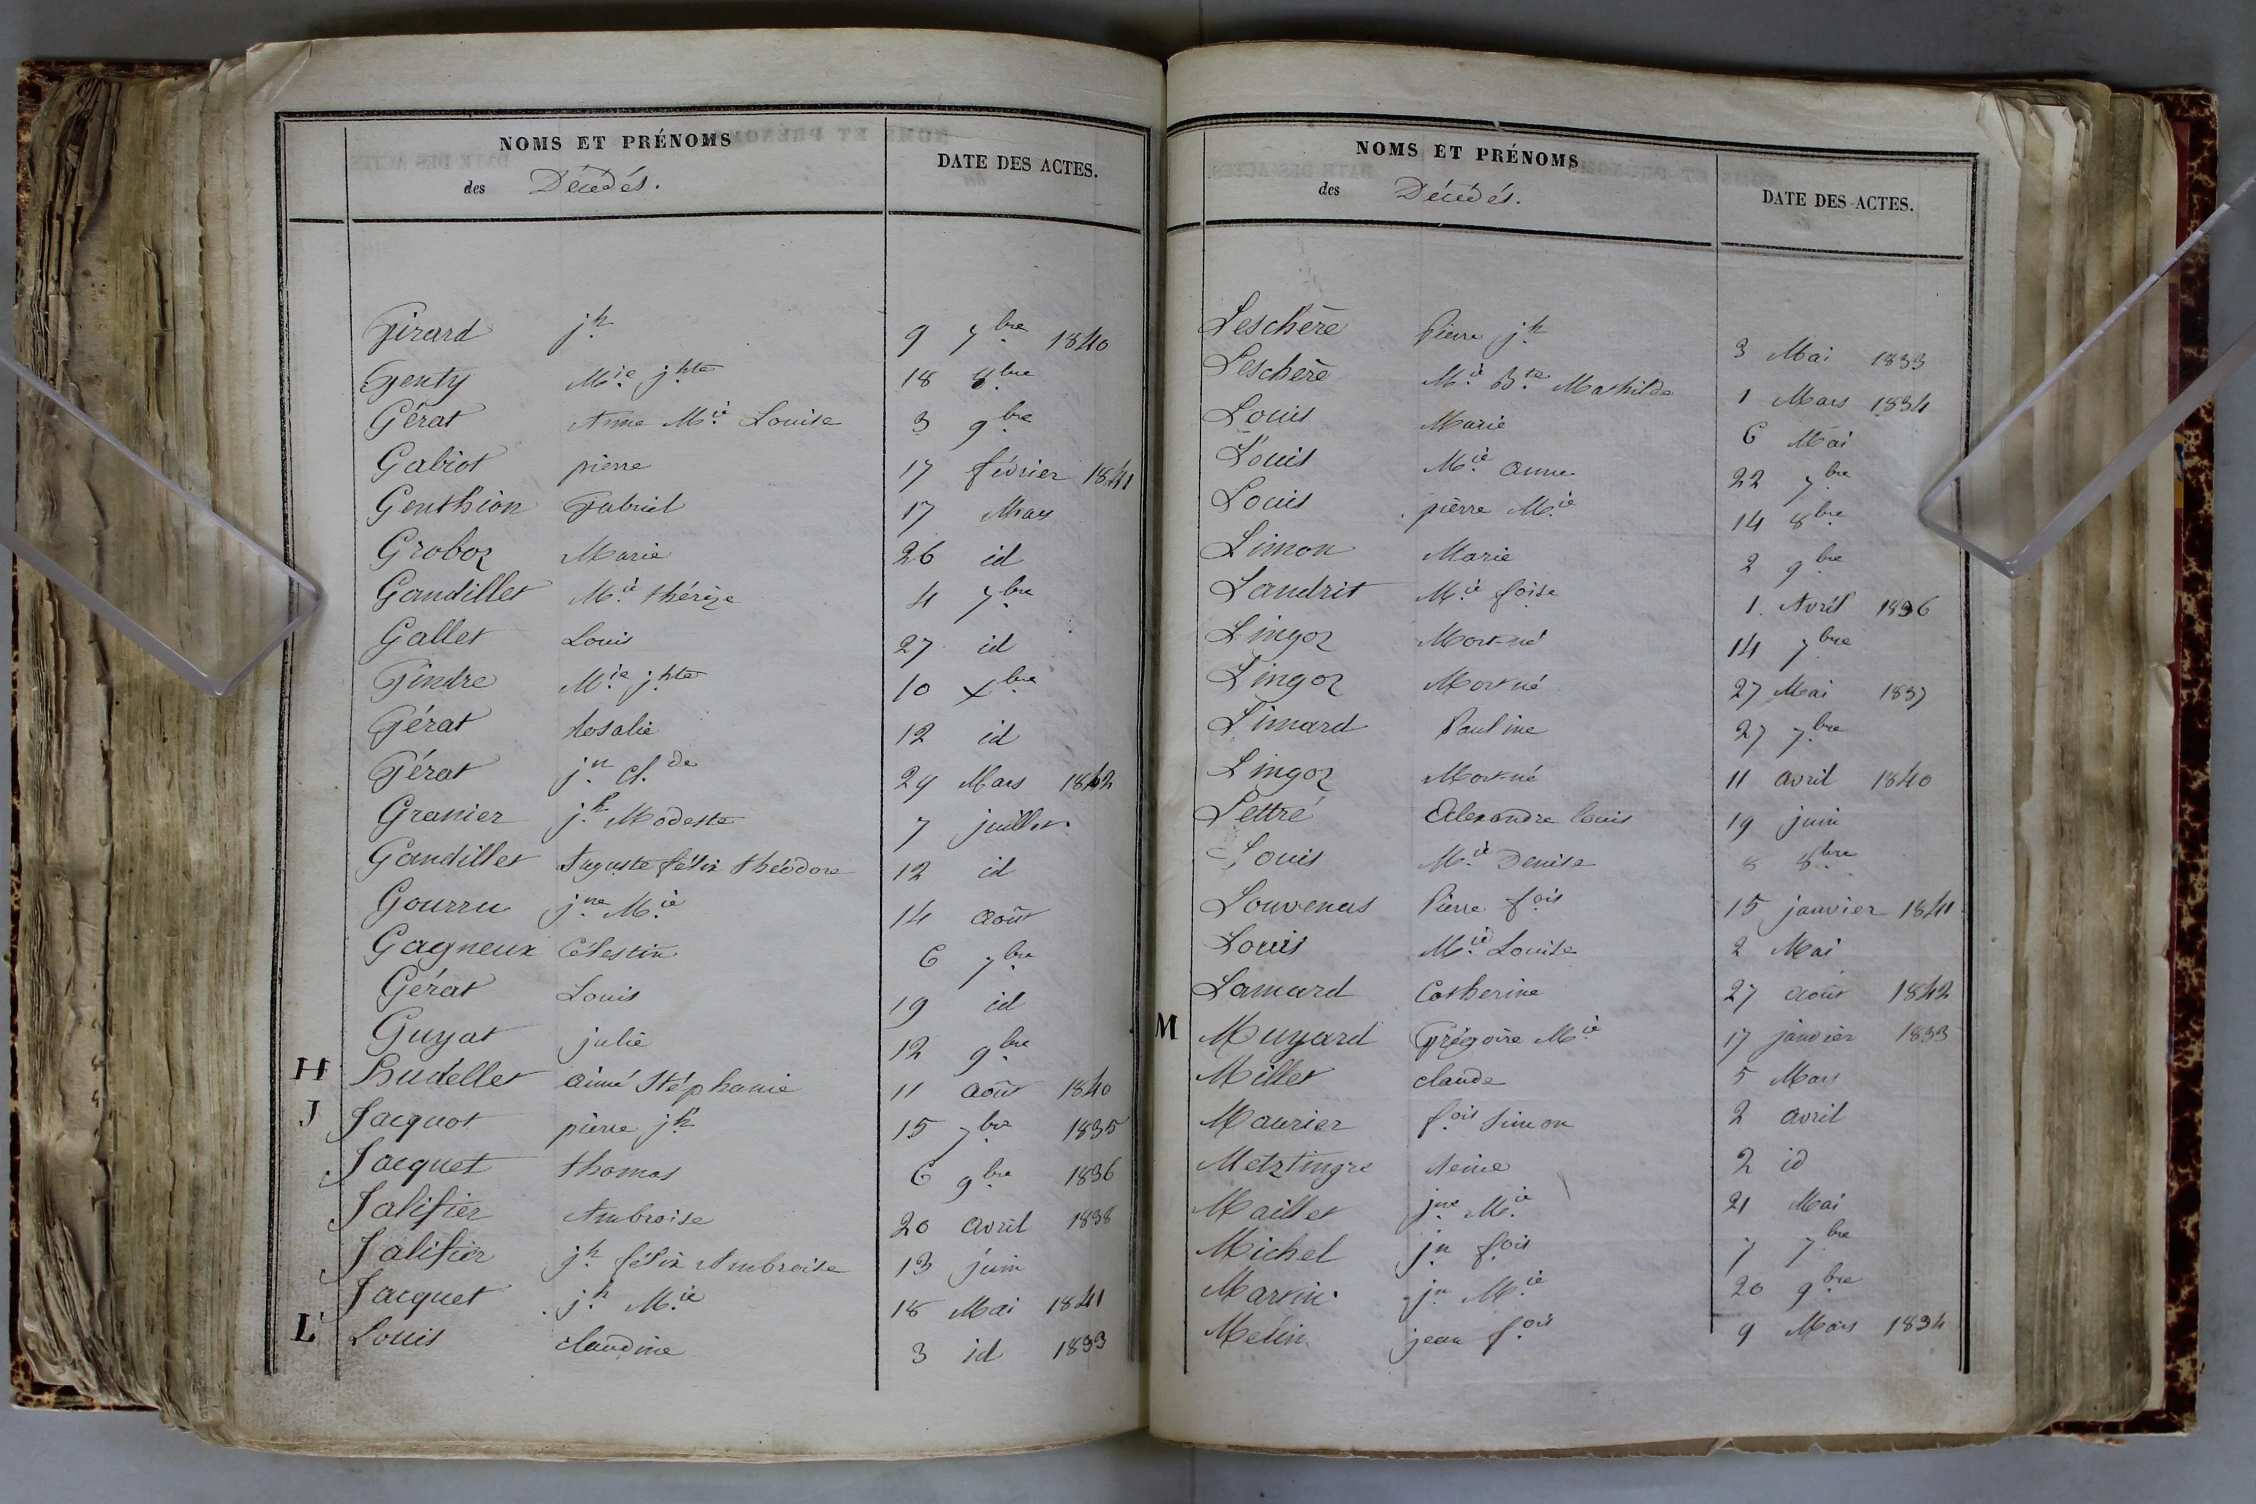 NOMS ET PRÉNOMS
des Décédés.
DATE DES ACTES.
Girard jh 9 7bre 1840
Genty Mie jhte 18 8bre
Gérat Anne Mie Louise 3 9bre
Gabiot pierre 17 février 1841
Genthion Gabriel 17 Mars
Groboz Marie 26 id
Gandillet Mie thérèze 4 7bre
Gallet Louis 27 id
Gindre Mie jhte 10 Xbre
Gérat Rosalie 12 id
Gérat jn Cl.de 29 Mars 1842
Granier jh Modeste 7 juillet
Gandillet Auguste félix théodore 12 id
Gourru jne Mie 14 août
Gagneux Célestin 6 7bre
Gérat Louis 19 id
Guyat julie 12 9bre
H Hudellet aimé Stéphanie 11 août 1840
J Jacquot pierre jh 15 7bre 1835
Jacquet thomas 6 9bre 1836
Jalifier Ambroise 20 avril 1838
Jalifier jh félix Ambroise 13 juin
Jacquet jh Mie 18 Mai 1841
L Louis claudine 3 id 1833
NOMS ET PRÉNOMS
des Décédés.
DATE DES ACTES.
Leschère Pierre jh 3 Mai 1833
Leschère Mie Bte Mathilde 1 Mars 1834
Louis Marie 6 Mai
Louis Mie anne 22 7bre
Louis pierre Mie 14 8bre
Limon Marie 2 9bre
Landrit Mie foise 1 Avril 1836
Lingoz Mort-né 14 7bre
Lingoz Mort né 27 Mai 1837
Limard Pauline 27 7bre
Lingoz Mort-né 11 avril 1840
Lettré Alexandre louis 19 juin
Louis Mie Denise 8 8bre
Louvenas Pierre fois 15 janvier 1841
Louis Mie Louise 2 Mai
Lamard Catherine 27 août 1842
M Muyard Grégoire Mie 17 janvier 1833
Millet claude 5 Mars
Maurier fois Simon 2 avril
Metztingre Reine 2 id
Maillet jne Mie 21 Mai
Michel jn fois 7 7bre
Martin jn Mie 20 9bre
Melin jean fois 9 Mars 1834